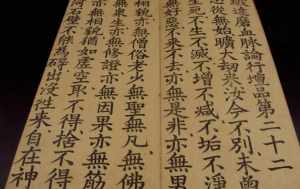 磨血脈論行增品第二十二
從無始曠大劫來汝今不別未曾
死不生不滅不增不減不垢不淨
好不惡不來不去亦無是非亦無男
亦無僧俗老少無聖無凡亦無佛
無衆生亦無修證亦無因果亦無筋
亦無相貌猶如虛空取不得捨不得
河石壁不能為礙出沒往來自在神